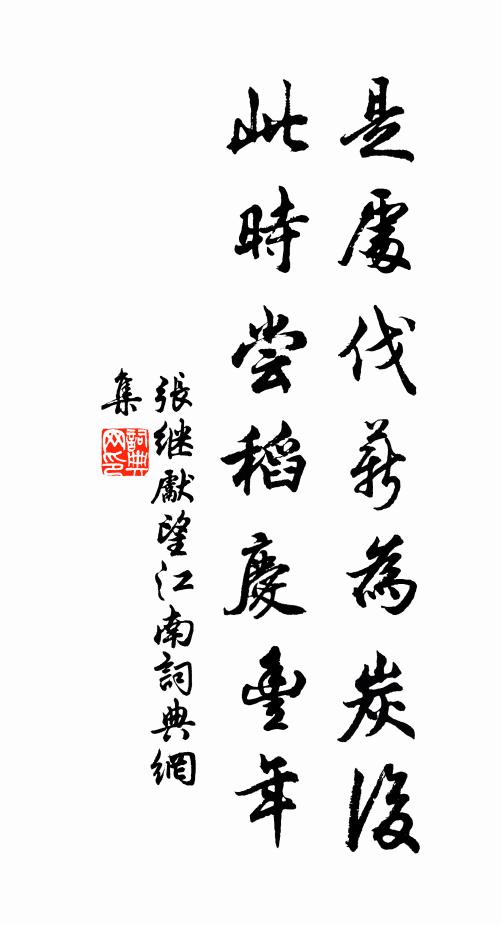 是處伐薪為炭後
此時尝稻慶豐年
張继獻望江南詞典網
集
詞典
网印